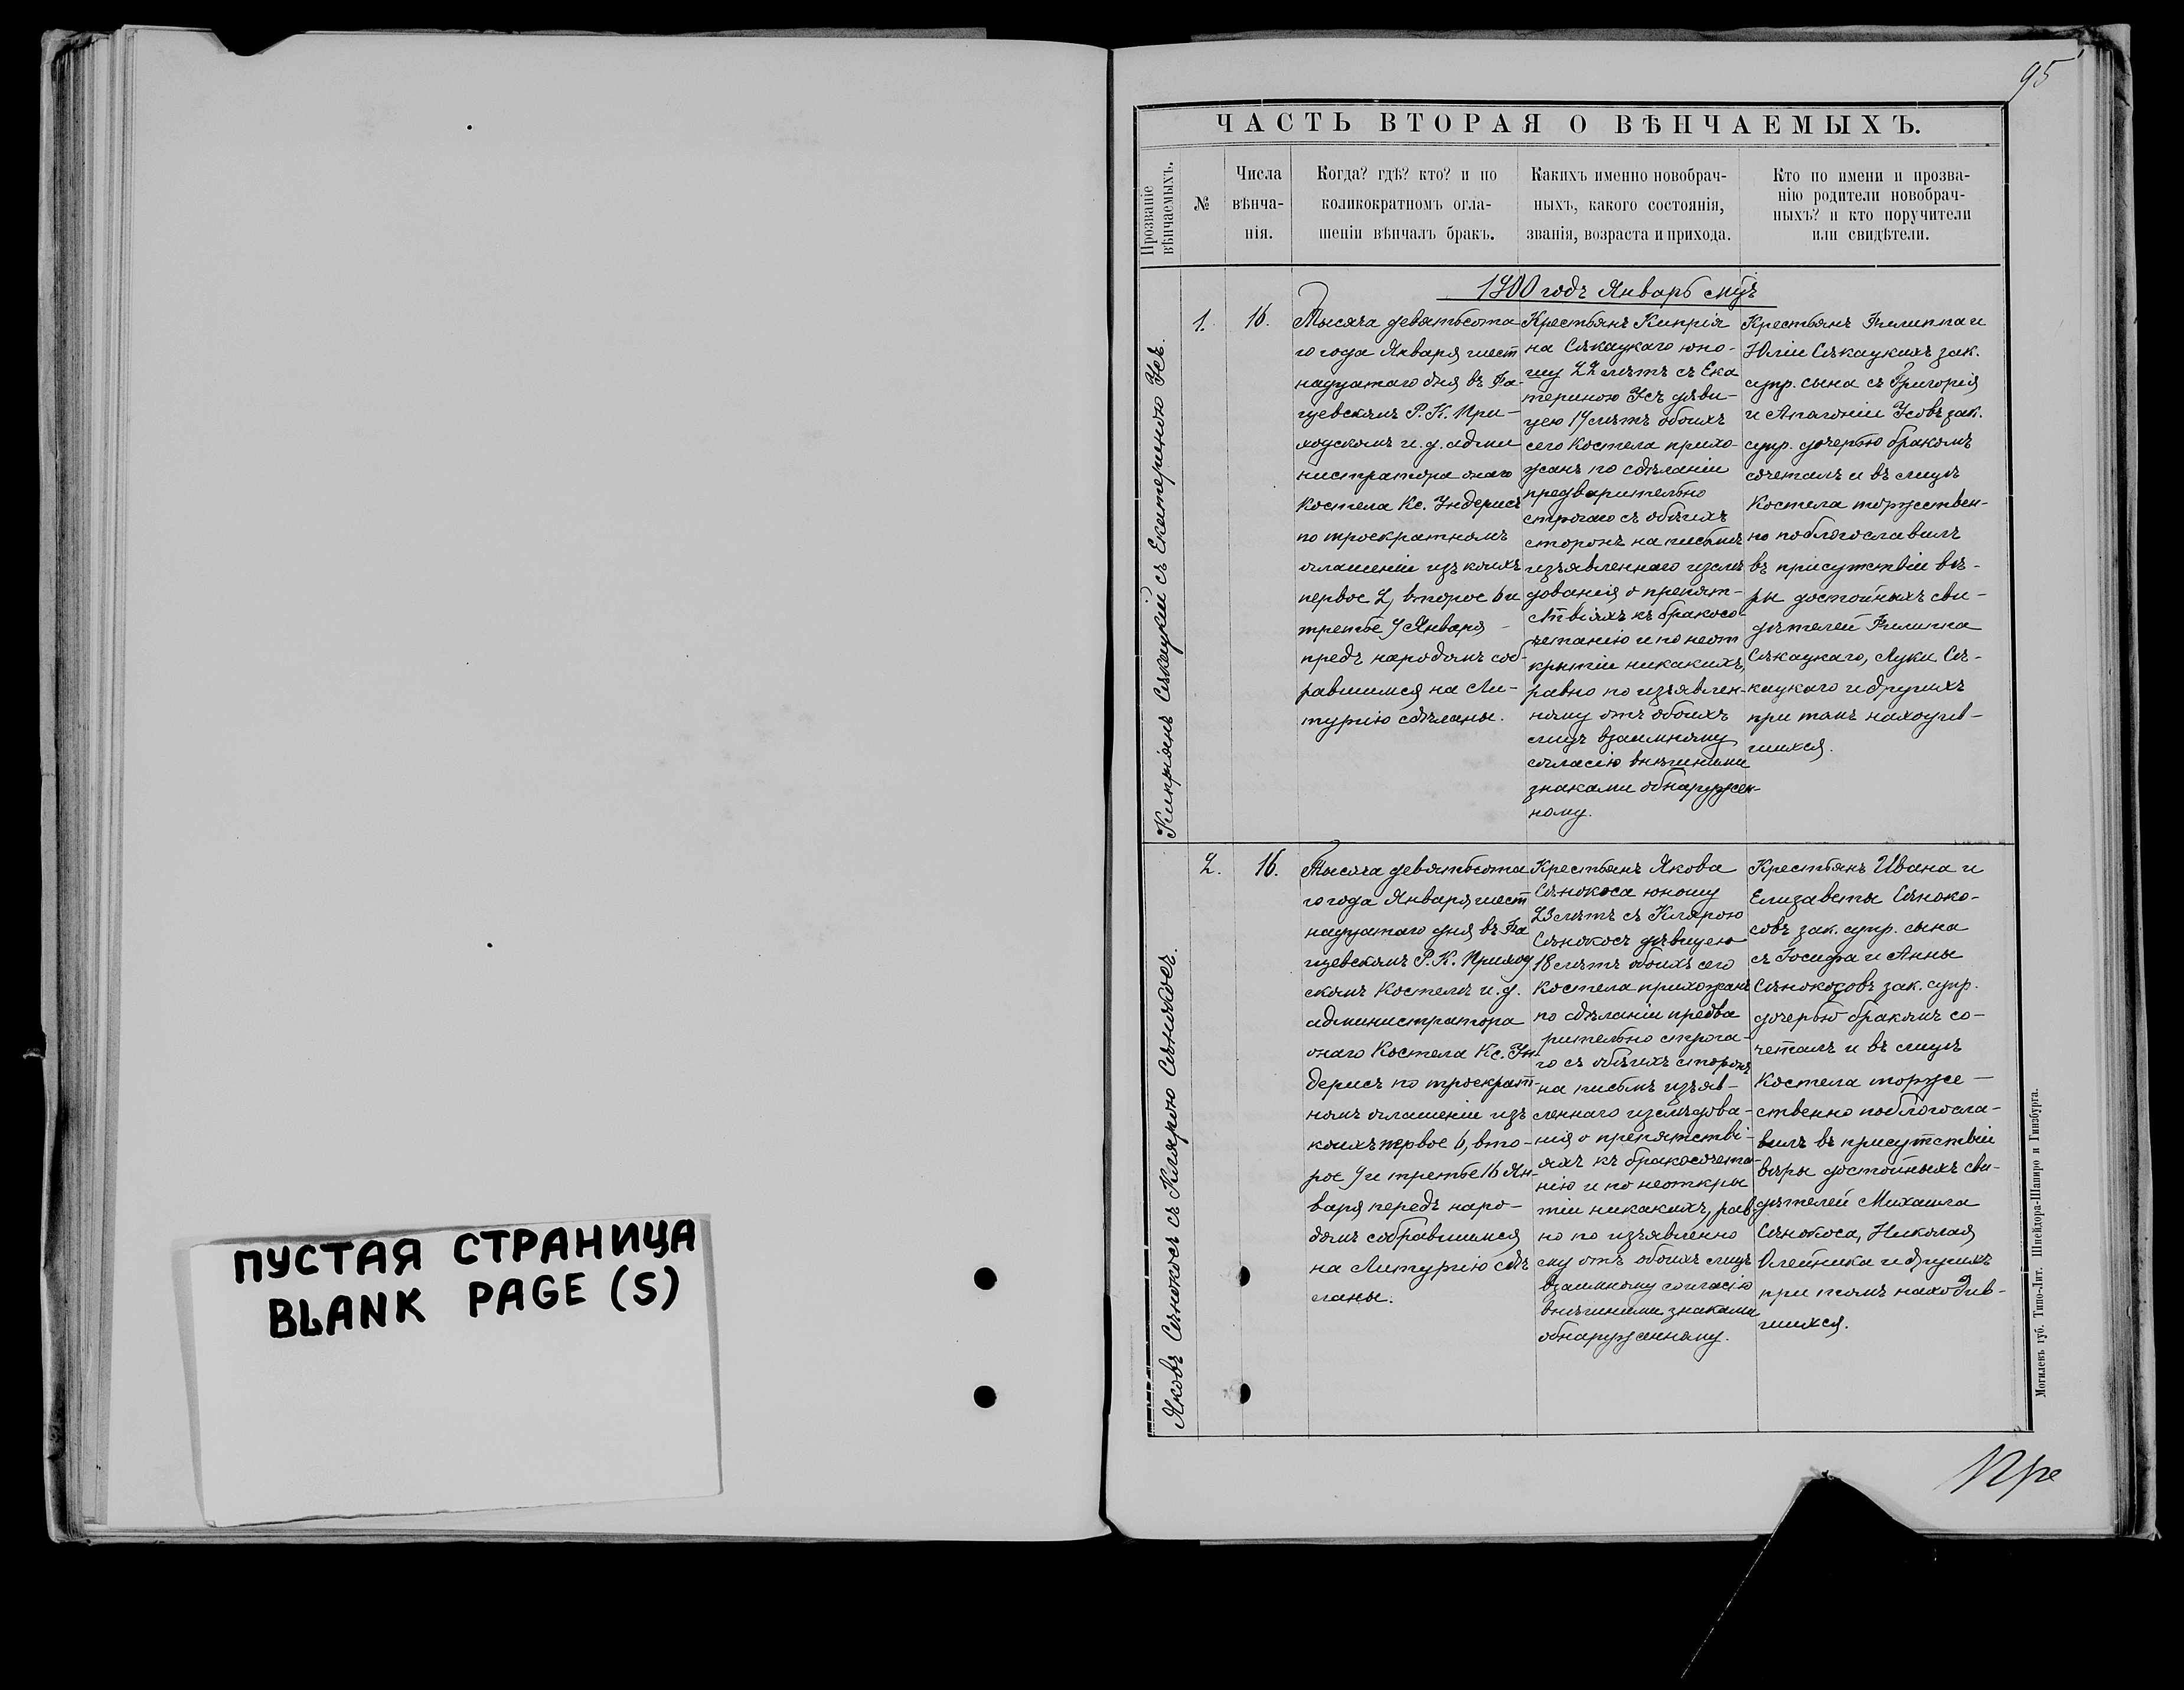 ПУСТАЯ СТРАНИЦА
BLANK PAGE (S)
95
ЧАСТЬ ВТОРАЯ О ВѢНЧАЕМЫХЪ.
Прозваніе
вѣнчаемыхъ.
№
Числа
вѣнча-
нія.
Когда? гдѣ? кто? и по
коликократномъ огла-
шеніи вѣнчалъ бракъ.
Какихъ именно новобрач-
ныхъ, какого состоянія,
званія, возраста и прихода.
Кто по имени и прозва-
нію родители новобрач-
ныхъ? и кто поручители
или свидѣтели.
1900 годъ Январь мцъ
Кипріянъ Сѣкацкій съ Екатериною Усъ.
1.
16.
Тысяча девятьсота
го года Января шест
надцатаго дня въ Фа-
щевскомъ Р. К. При-
ходскомъ и. д. адми
нистратора онаго
Костела Кс. Ундерисъ
по троекратномъ
оглашеніи изъ коихъ
первое 2, второе 6 и
третье 9 Января
предъ народомъ соб-
равшимся на Ли-
тургію сдѣланы.
Крестьянъ Кипрія
на Сѣкацкаго юно-
шу 22 лѣтъ съ Ека
териною Усъ дѣви-
цею 19 лѣтъ обоихъ
сего Костела прихо
жанъ по сдѣланіи
предварительно
строгаго съ обѣихъ
сторонъ на письмѣ
изъявленнаго изслѣ
дованія о препят-
ствіяхъ къ бракосо-
четанію и по неот
крытіи никакихъ,
равно по изъявлен-
ному отъ обоихъ
лицъ взаимному
согласію внѣшними
знаками обнаружен-
ному.
Крестьянъ Филиппа и
Юліи Сѣкацкихъ зак.
супр. сына съ Григорія
и Апагоніи Усовъ зак.
супр. дочерью бракомъ
сочеталъ и въ лицѣ
Костела торжествен-
но поблогославилъ
въ присутствіи вѣ-
ры достойныхъ сви-
дѣтелей Филиппа
Сѣкацкаго, Луки Сѣ-
кацкаго и другихъ
при томъ находив-
шихся.
Яковъ Сѣнокосъ съ Клярою Сѣнокосъ.
2.
16.
Тысяча девятьсота
го года Января шест
надцатаго дня въ Фа
щевскомъ Р. К. Приход
скомъ Костелѣ и. д.
администратора
онаго Костела Кс. Ун
дерисъ по троекрат-
номъ оглашеніи изъ
коихъ первое 6, вто-
рое 9 и третье 16 Ян-
варя передъ наро-
домъ собравшимся
на Литургію сдѣ
ланы.
Крестьянъ Якова
Сѣнокоса юношу
23 лѣтъ съ Клярою
Сѣнокосъ дѣвицею
18 лѣтъ обоихъ сего
Костела прихожанъ
по сдѣланіи предва
рительно строга-
го съ обѣихъ сторонъ
на письмѣ изъяв-
леннаго изслѣдова-
нія о препятстві-
яхъ къ бракосочета-
нію и по неоткры
тіи никакихъ, рав
но по изъявленно
му отъ обоихъ лицъ
взаимному согласію
внѣшними знаками
обнаруженному.
Крестьянъ Ивана и
Елизаветы Сѣноко-
совъ зак. супр. сына
съ Іосифа и Анны
Сѣнокосовъ зак. супр.
дочерью бракомъ со-
четалъ и въ лицѣ
Костела торже-
ственно поблогосла-
вилъ въ присутствіи
вѣры достойныхъ сви-
дѣтелей Михаила
Сѣнокоса, Николая
Олейника и другихъ
при томъ находив-
шихся.
Могилевъ губ. Типо-Лит. Шнейдора-Шапиро и Гинзбурга.